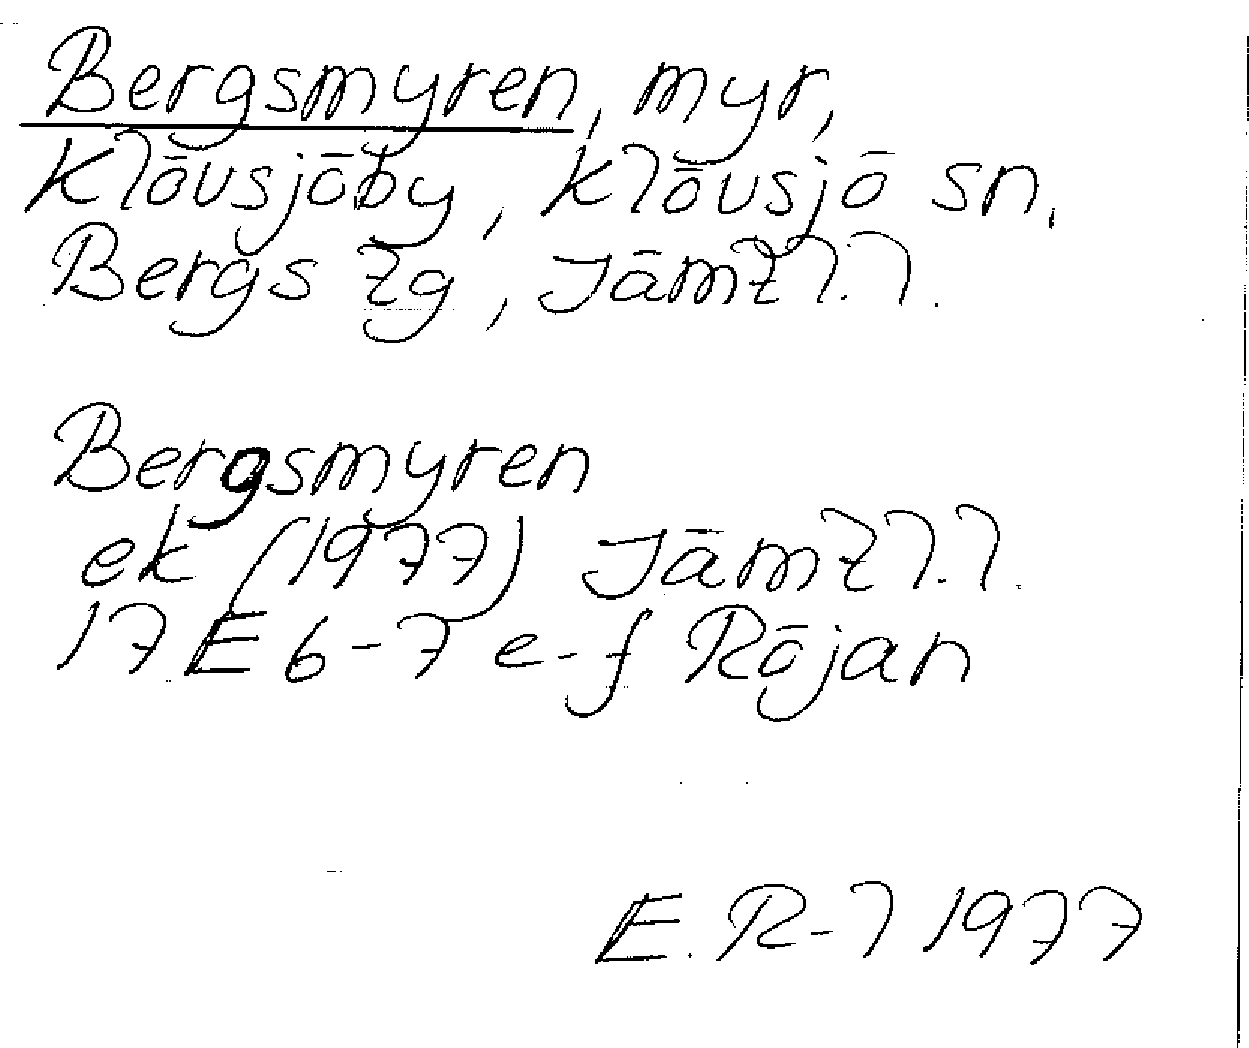 Bergsmyren, myr,
Klövsjöby, Klövsjö sn.
Bergs tg, Jämtl.l.
Bergsmyren
ek (1977) Jämtl.l.
17 E 6-7 e-f Röjan
E. R-l 1977